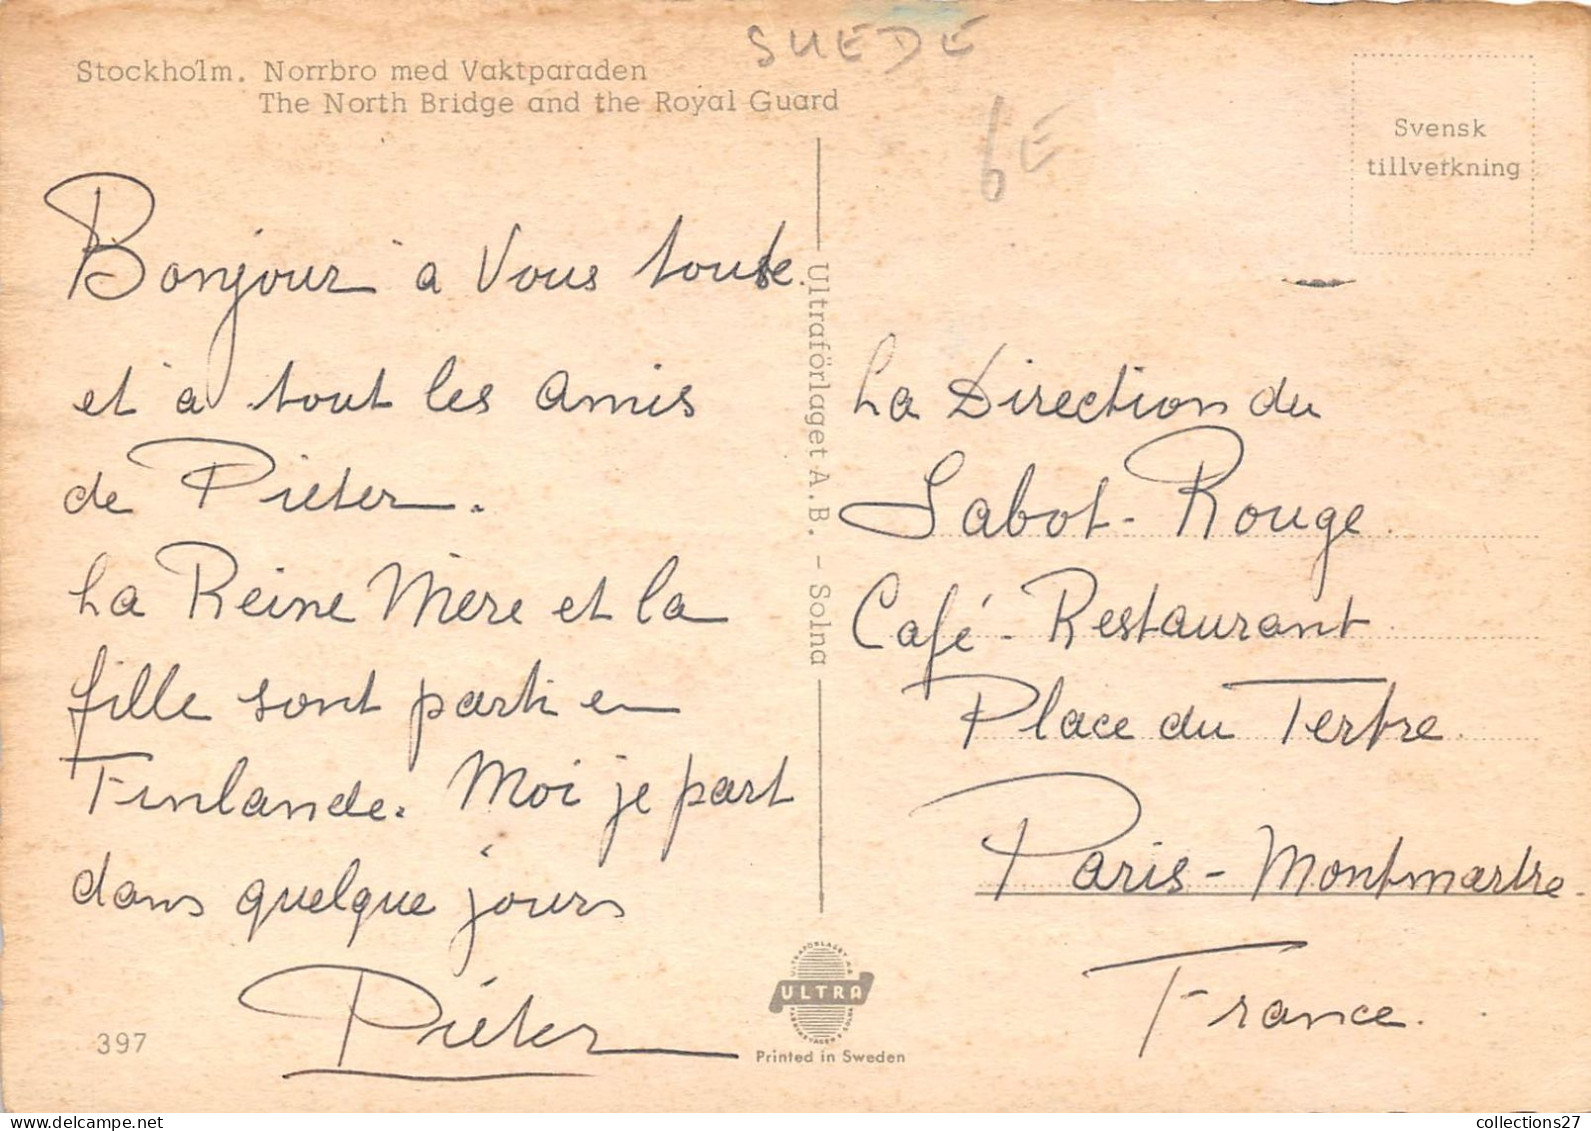 SUEDE
Stockholm. Norrbro med Vaktparaden
The North Bridge and the Royal Guard
6E
Svensk
tillverkning
Bonjour a Vous toute
et a tout les amis
de Pieter.
La Reine Mère et la
fille sont parti en
Finlande. Moi je part
dans quelque jours
Piéter
397
Ultraförlaget A.B. - Solna
La Direction du
Sabot-Rouge
Café-Restaurant
Place du Tertre
Paris-Montmartre
France.
ULTRA
Printed in Sweden
collections27